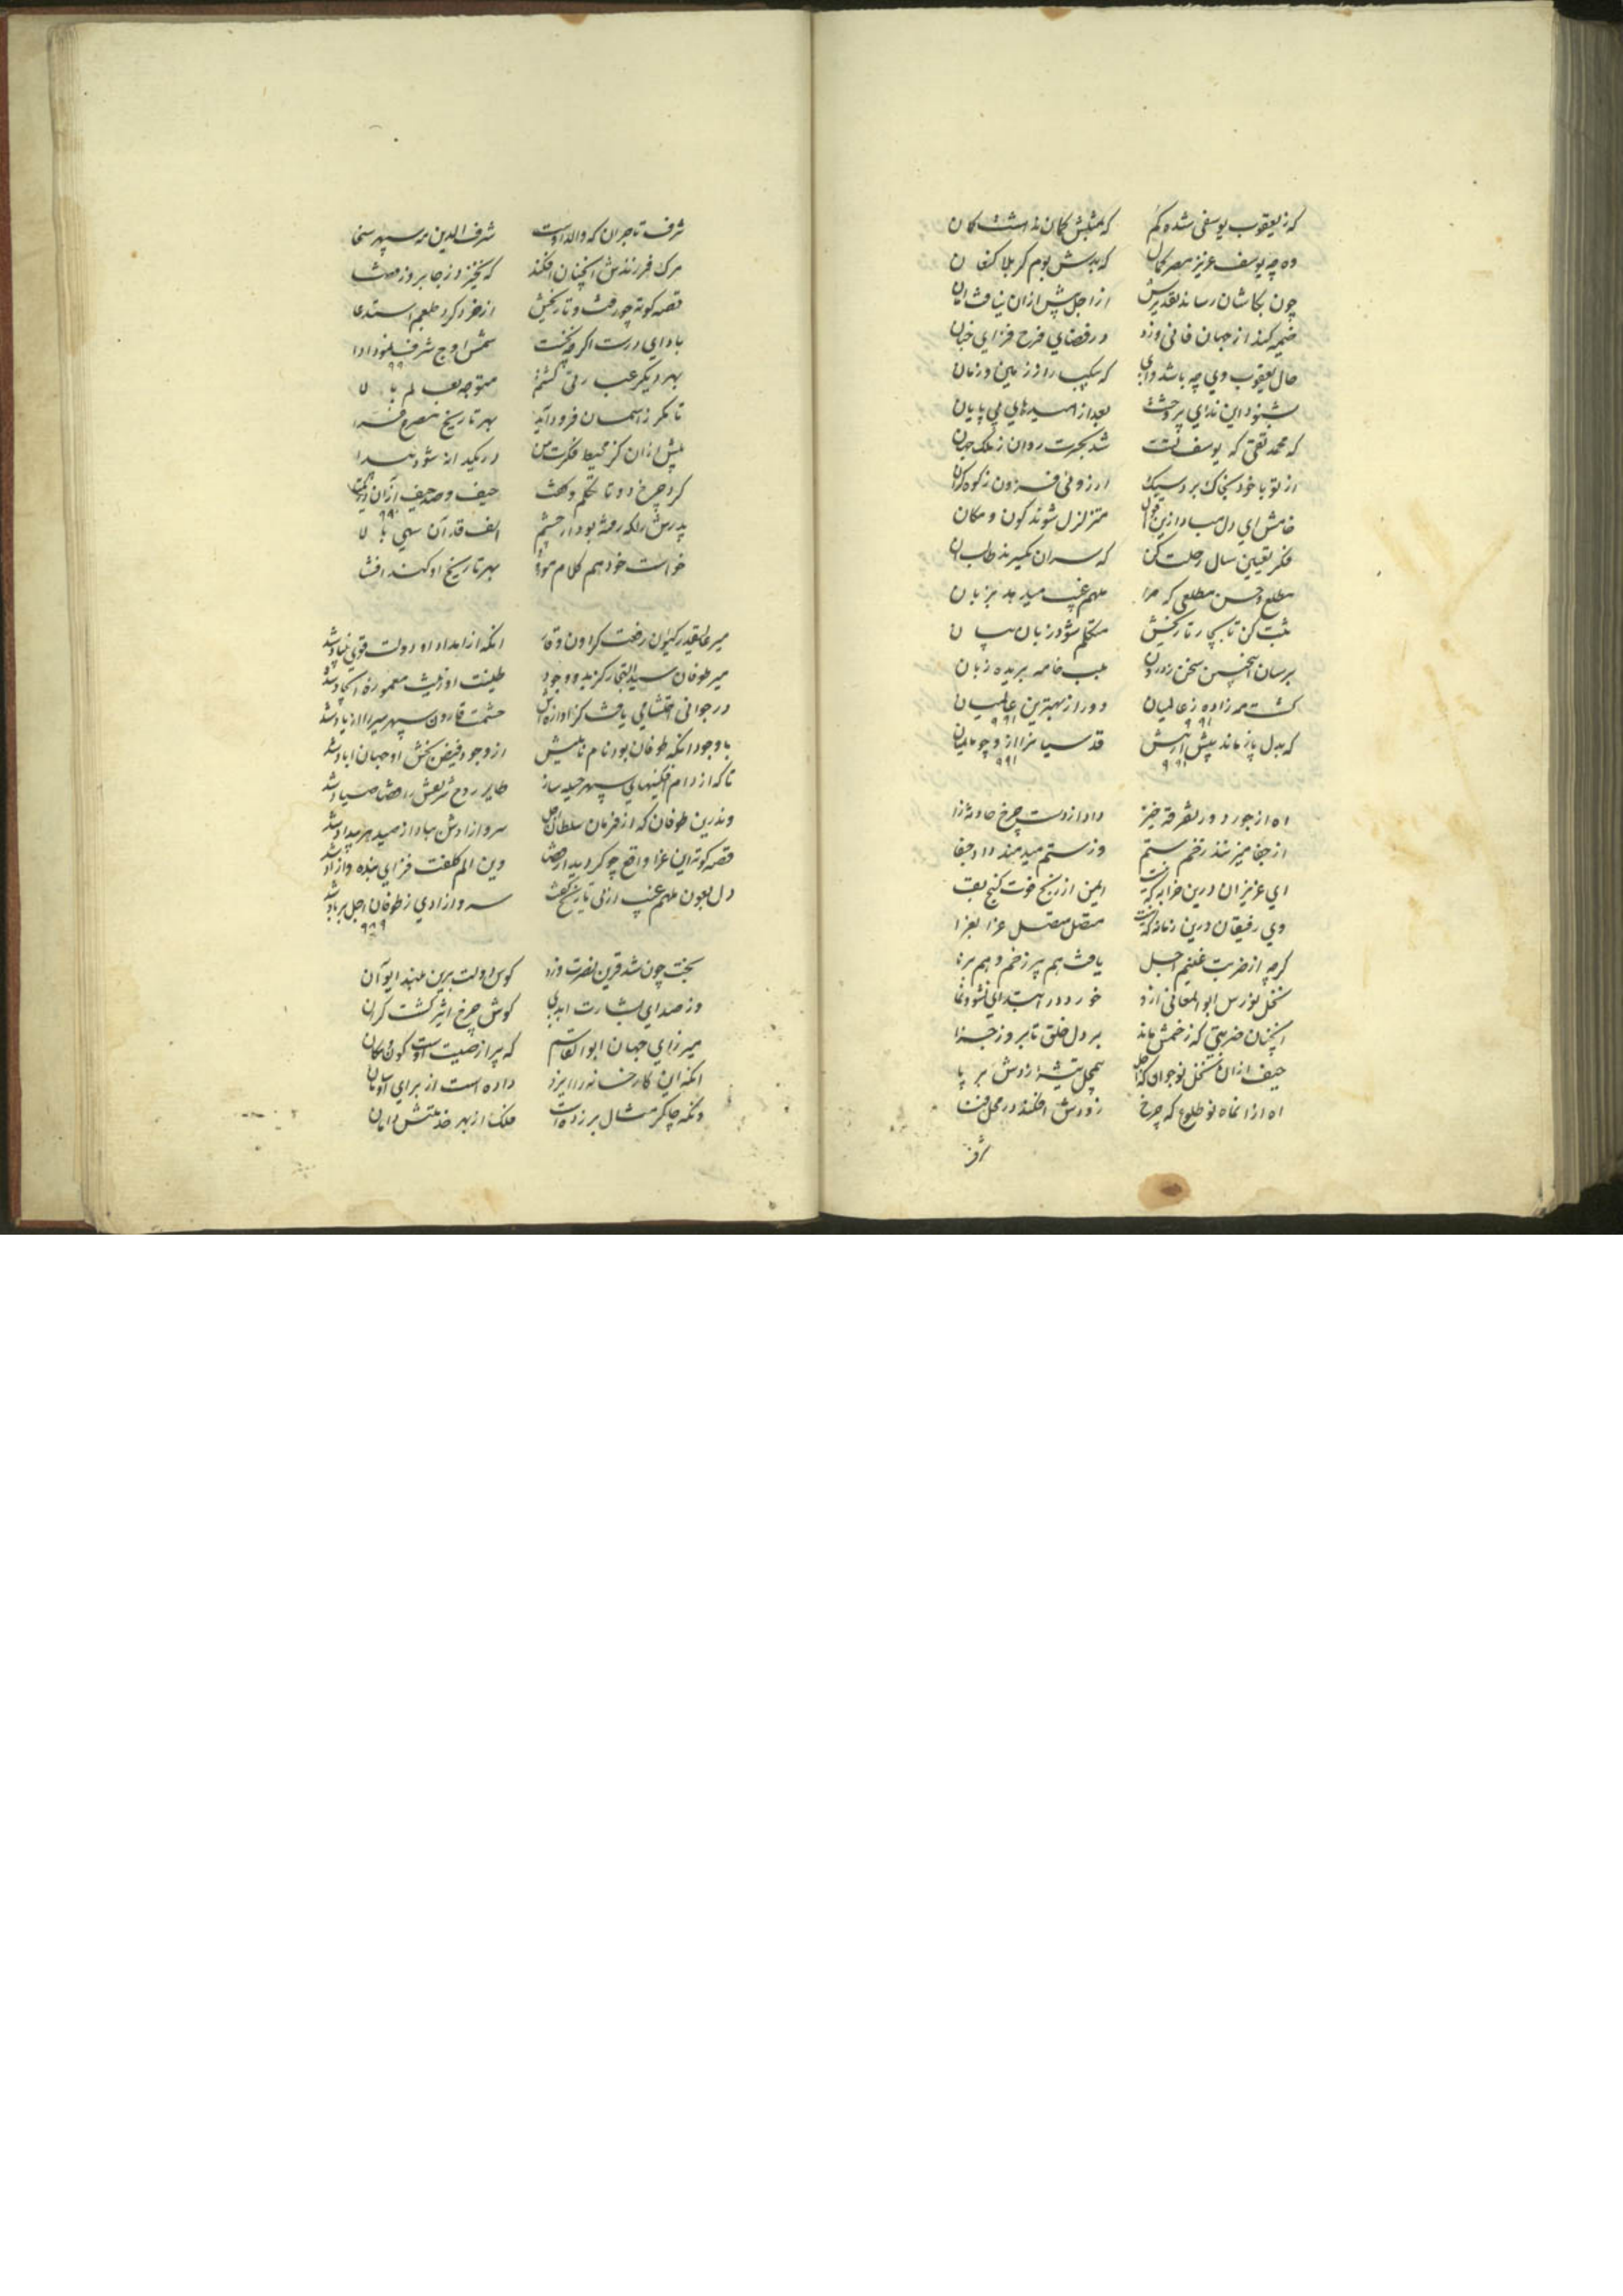 که ز یعقوب یوسفی شده کم که مثلش کان نداشت کان
ده چه یوسف عزیز مصر کمال که بدش بوم کربلا کنعان
چون بکاشان رساند تقدیرش از اجل پیش ازان نیافت امان
خیمه کند از جهان فانی وزد در فضای فرح فزای جنان
حال یعقوب وی چه باشد وای که شکیب را از زمین و زمان
بشنود این ندای پر وحشت بعد از امیدهای بی پایان
که محمد تقی که یوسف تست شد بحسرت روان ز ملک جهان
ارزوئی فزون ز کوه گران
خامش ای دل مباد ازین متزلزل شوند کون و مکان
فکر تعیین سال رحلت کن که سران
مطلع و حسن مطلعی که مرا ملهم غیب میدهد بزبان
ثبت کن تا بچار تاریخش متکلم شود زبان بیان
برسان سخن بلب خامه بریده زبان
گشت مه زاده ز عالمیان دور از بهترین عالمیان
۹۹۱ ۹۹۱
که بدل باز ماند پیش
۹۹۱ ۹۹۱
اه از جور دور تفرقه خیز داد از دست چرخ حادثه زا
از جفا میزنند زخم ستم وز ستم میدهند داد جفا
ای عزیزان درین خرابه که یافت ایمن از رنج فوت گنج بقا
وی رفیقان درین زمانه که متصل متصل عزا بعزا
گرچه از ضربت غنیم اجل یافت هم پیر زخم و هم برنا
نخل نورس ابوالمعالی ازو خورد در ابتدای نشو و نما
انچنان ضربتی که زخمش ماند بر دل خلق تا بروز جزا
حیف ازان نخل نوجوان که اجل بیمحل تیشه زدش بر پا
اه از انماه نو طلوع که چرخ زودش افکند در محل فنا
شرف تاجران که والد اوست شرف الدین مه سپهر سخا
مرک فرزندش انچنان افکند که نخیزد ز جا بروز
قصه کوته چو رفت و تاریخش از خرد کرد طبعم استدعا
باد ای درست اگر چه نخست شمس اوج شرف نمود ادا
۹۹
بهر دیگر عبارتی گشتم متوجه بعالم بالا
تا مگر ز اسمان فرود آید بهر تاریخ مصرع
پیش ازان کز محیط فکرت من در یکدانه شود پیدا
کرد چرخ دوتا تکلم و گفت حیف و صد حیف ازان
۹۹
پدرش را که رفته بود از چشم الف قد آن سهی بالا
خواست خود هم کلام موزون بهر تاریخ او کند انشا
میر عالیقدر کیوان رفعت گردون وقار انکه از امداد او دولت قوی بنیاد شد
میر طوفان سید التجار کز بدو وجود طینت او زینت معموره ایجاد شد
در جوانی احتشامی یافت کز حشمت قارون سپهر پیر را از یاد شد
با وجود انکه طوفان بود نام نامیش از وجود فیض بخش او جهان اباد شد
تا که از دام فکنیهای سپهر حیله ساز طایر روح شریفش را قضا صیاد شد
وندرین طوفان که از فرمان سلطان اجل سرو ازادش
قصه کوته این عزا واقع چو گردید از قضا وین الم کلفت فزای بنده و ازاد شد
دل بعون ملهم غیب از پی تاریخ گفت سرو ازادی ز طوفان اجل بر باد شد
۹۸۹
بخت چون شد قرین نصرت وزد کوس دولت برین بلند ایوان
وز صدای بشارت ابدی گوش چرخ اثیر گشت گران
میرزای جهان ابوالقاسم که پر از صیت اوست کون و مکان
انکه این کارخانه را ایزد داده است از برای او
وانکه چاکر مثال بر زده است فلک از بهر خدمتش دامان